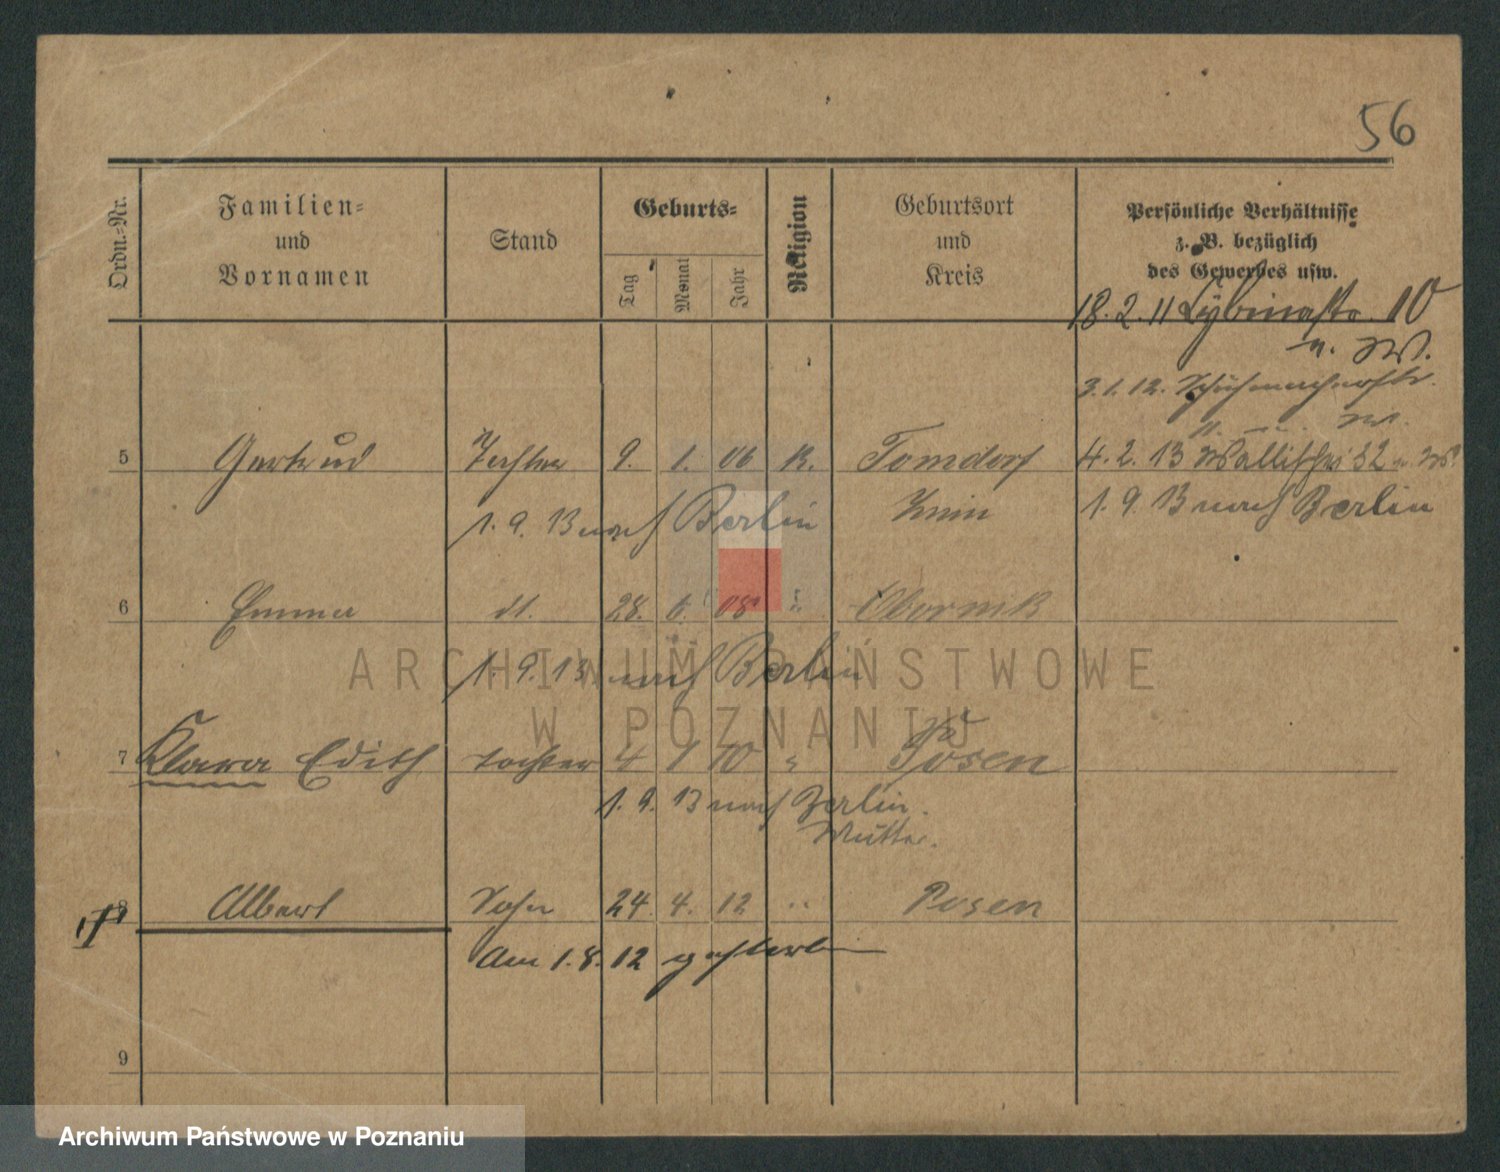 56
Ordn.-Nr.
Familien-
und
Vornamen
Stand
Geburts-
Tag
Monat
Jahr
Religion
Geburtsort
und
Kreis
Persönliche Verhältnisse
z. B. bezüglich
des Gewerbes usw.
18. 2. 11 Lybinastr. 10
u. W.
3. 1. 12. Schuhmacherstr.
W.
5 Gertrud Tochter 9. 1. 06 K. Tomdorf 4. 2. 13 Wallischei 32 u. W.
1. 9. 13 nach Berlin Znin 1. 9. 13 nach Berlin
6 Emma dt. 28. 6. 08 " Obornik
1. 9. 13 nach Berlin
ARCHIWUM PAŃSTWOWE
W POZNANIU
7 Klara Edith Tochter 4 1 10 " Posen
1. 9. 13 nach Berlin.
Mutter.
8 Albert Sohn 24. 4. 12 " Posen
Am 1. 8. 12 gestorben
9
Archiwum Państwowe w Poznaniu